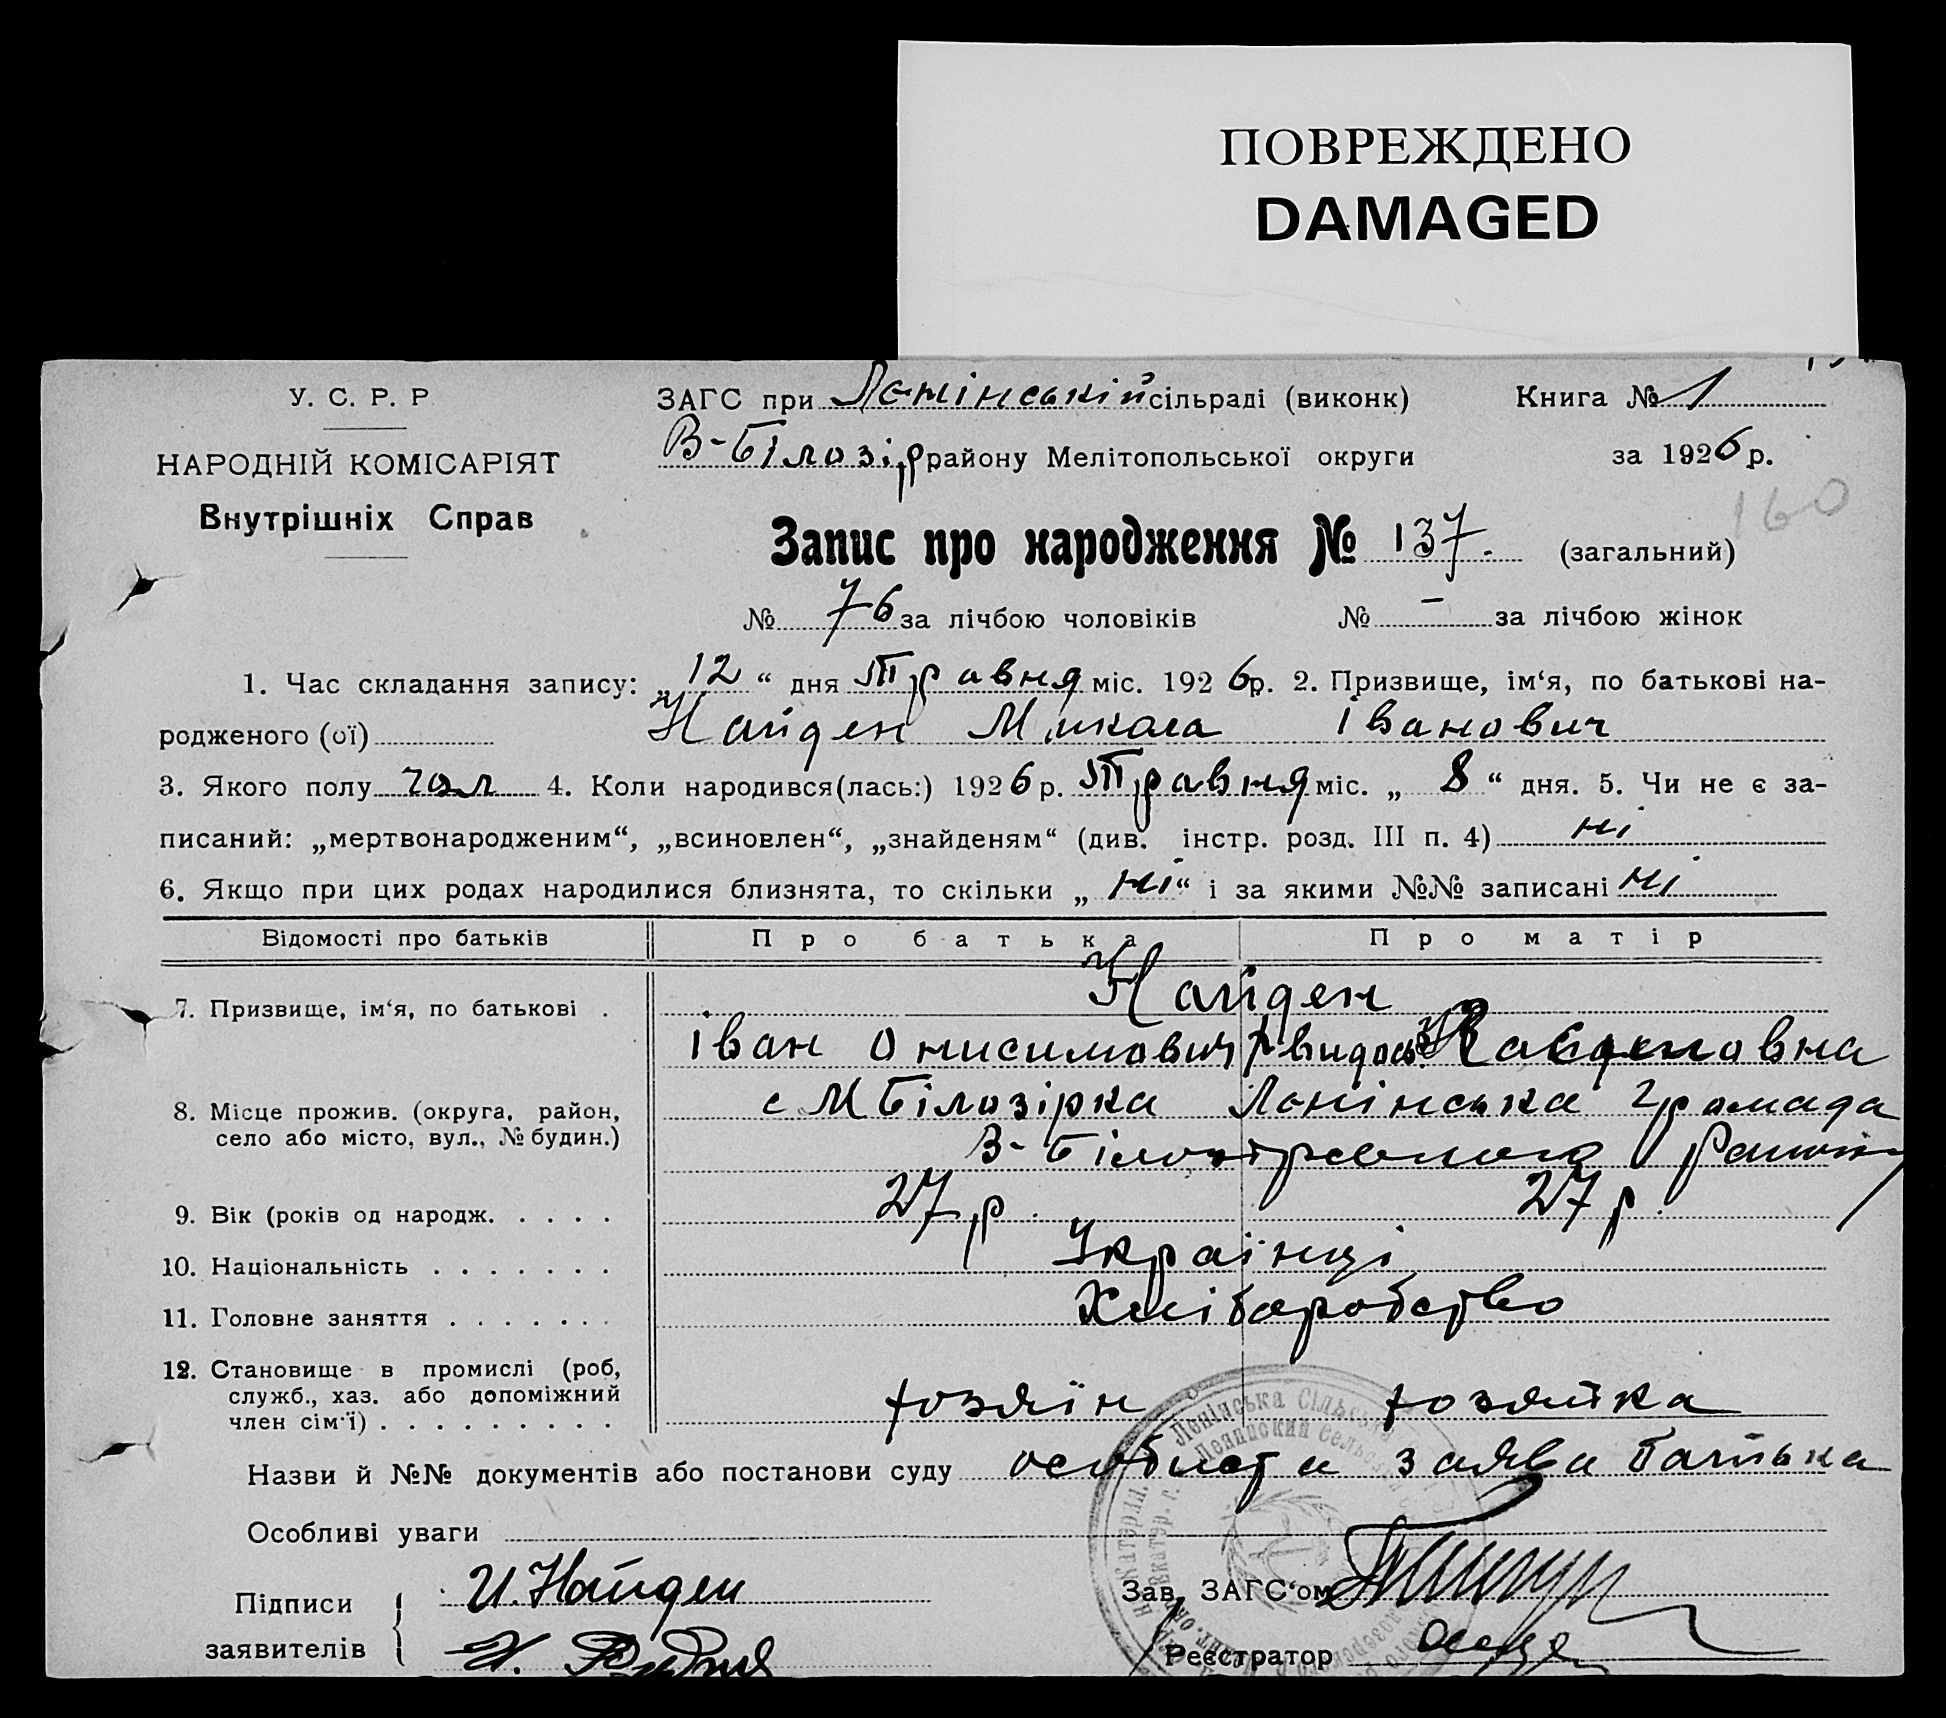 ПОВРЕЖДЕНО
DAMAGED
У. С. Р. Р
НАРОДНІЙ КОМІСАРІЯТ
Внутрішніх Справ
ЗАГС при Ленінській сільраді (виконк)
В-Білозір району Мелітопольської округи
Книга № 1
за 1926 р.
160
Запис про народження № 137. (загальний)
№ 76 за лічбою чоловіків № - за лічбою жінок
1. Час складання запису: „12“ дня Травня міс. 1926 р. 2. Призвище, ім‘я, по батькові на-
родженого (ої) Найден Микола Іванович
3. Якого полу чол 4. Коли народився(лась:) 1926 р. Травня міс. „8“ дня. 5. Чи не є за-
писаний: „мертвонародженим“, „всиновлен“, „знайденям“ (див. інстр. розд. III п. 4) ні
6. Якщо при цих родах народилися близнята, то скільки „ні“ і за якими №№ записані ні
Відомості про батьків Про батька Про матір
7. Призвище, ім‘я, по батькові . Найден
Іван Онисимович
8. Місце прожив. (округа, район,
село або місто, вул., № будин.)
с М Білозірка Ленінська громада
В-
9. Вік (років од народж. . . . . 27 р. 27 р.
10. Національність . . . . . . . Українці
11. Головне заняття . . . . . . . Хліборобство
12. Становище в промислі (роб,
служб., хаз. або допоміжний
член сім‘ї) . . . . . . . . . хозяїн хозяйка
Назви й №№ документів або постанови суду особиста заява батька
Особливі уваги
Підписи
заявителів
И. Найден
Зав. ЗАГС‘ом
Реєстратор
Ленінська Сільська